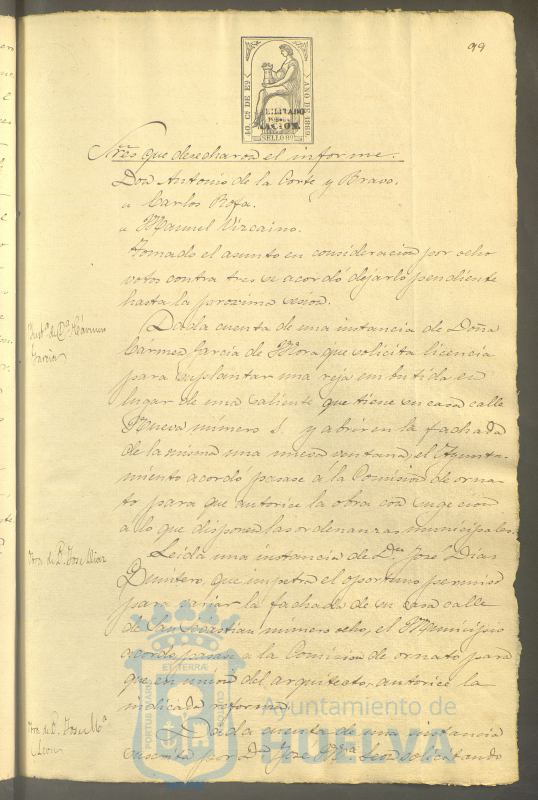 99
10. Cs DE Eº
AÑO DE 1869.
HABILITADO
POR LA
NACION.
SELLO 9º
Sres que desecharon el informe.
Don Antonio de la Corte y Bravo.
" Carlos Rofa.
" Manuel Vizcaino.
Tomado el asunto en consideracion por ocho
votos contra tres se acordó dejarlo pendiente
hasta la proxima sesion.
Instª de Dª Cármen
Garcia
Dada cuenta de una instancia de Doña
Cármen Garcia de Mora que solicita licencia
para suplantar una reja embutida en
lugar de una saliente que tiene su casa calle
Nueva número 5. y abrir en la fachada
de la misma una nueva ventana, el Ayunta-
miento acordó pasase á la Comision de orna-
to para que autorice la obra con sugecion
a lo que disponen las ordenanzas municipales.
Otra de D. Jose Diaz
Leida una instancia de Dn José Dias
Quintero, que impetra el oportuno permiso
para variar la fachada de su casa calle
de San Sebastian número ocho, el Municipio
acordó pasase a la Comision de ornato para
que en union del arquitecto, autorice la
indicada reforma.
Otra de D. Jose Mª
Leon
Dada cuenta de una instancia
suscrita por Dn Jose Mª Leon solicitando
PORTUS MARIS
ET TERRÆ
CUSTODIA
Ayuntamiento de
HUELVA